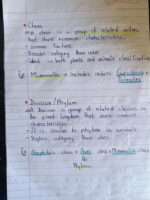 • Class
A class is a group of related orders
that share common characteristics.
• common features
• Broader category than order
• Used in both plants and animals classification
Eg Mammalia → includes orders Carnivora +
Primates
• Division / Phylum
A Division is a group of related classes in
the plant kingdom that share common
characteristics
• It is similar to phylum in animals
• Higher category than class
Eg class + Aves class + Mammalia class
Phylum